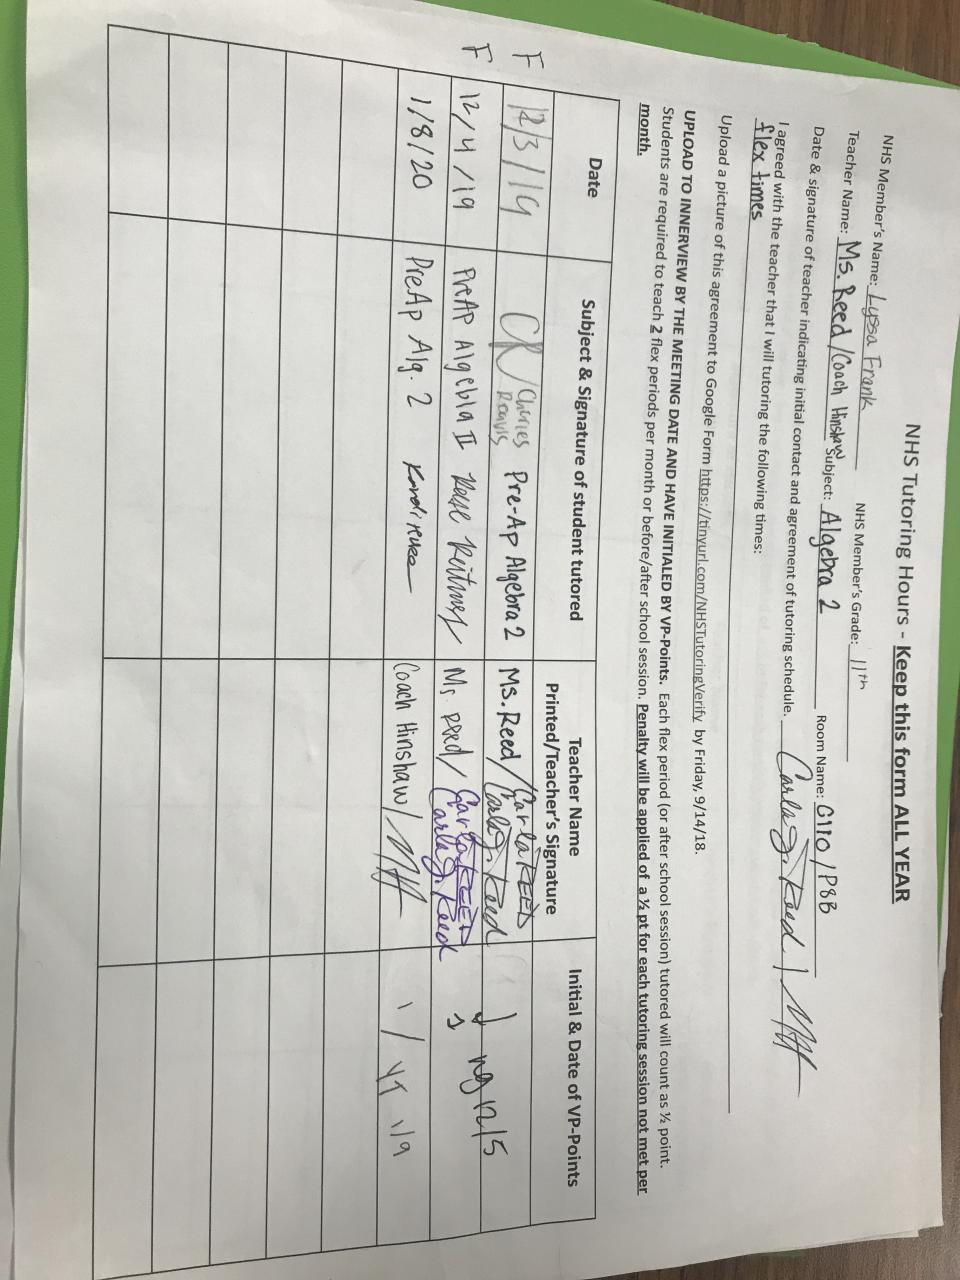 NHS Tutoring Hours - Keep this form ALL YEAR
NHS Member's Name: Lyssa Frank NHS Member's Grade: 11th
Teacher Name: Ms. Reed/Coach Hinshaw Subject: Algebra 2 Room Name: C110/P8B
Date & signature of teacher indicating initial contact and agreement of tutoring schedule. Carla J. Reed /
I agreed with the teacher that I will tutoring the following times:
flex times
Upload a picture of this agreement to Google Form https://tinyurl.com/NHSTutoringVerify by Friday, 9/14/18.
UPLOAD TO INNERVIEW BY THE MEETING DATE AND HAVE INITIALED BY VP-Points. Each flex period (or after school session) tutored will count as ½ point.
Students are required to teach 2 flex periods per month or before/after school session. Penalty will be applied of a ½ pt for each tutoring session not met per
month.
Date Subject & Signature of student tutored Teacher Name Printed/Teacher's Signature Initial & Date of VP-Points
F 12/3/19 CR/Charles Pre-Ap Algebra 2 Ms. Reed/Carla REED Carla J. Reed 1
F 12/4/19 PreAP Algebra II Ms reed/Carla REED Carla J. Reed 1 ng 12/5
1/8/20 PreAp Alg. 2 Coach Hinshaw/ 1 / YT 1/9